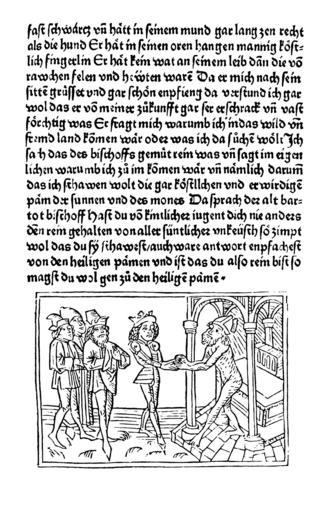 fast schwarcz vñ hått in seinem mund gar lang zen recht
als die hund Er hat in seinen oren hangen mannig kóst-
lich fingerlin Er hat kein wat an seinem leib dañ die võ
rawchen felen vnd hewten warē Da er mich nach sein
sittē grüsset vnd gar schon enpfieng da vestund ich gar
wol das er võ meiner zůkunfft gar ser erschrack vñ vast
förchtig was Er fragt mich warumb ich in das wild vñ
fremd land kõmen wår oder was ich da sůchē wólt Ich
sah das des bischoffs gemüt rein was vñ sagt im eigen
lichen warumb ich zů im kõmen wår vñ nåmlich darum
das ich schawen wolt die gar kóstlichen vnd erwirdigē
pām der sunnen vnd des mones Da sprach der alt bar-
tot bischoff Hast du võ kintlicher iugent dich nie anders
den rein gehalten von aller süntlicher vnkeusch so zimpt
wol das du sy schawest/auch ware antwort enpfachest
von den heiligen påmen vnd ist das du also rein bist so
magst du wol gen zů den heiligē påmē.